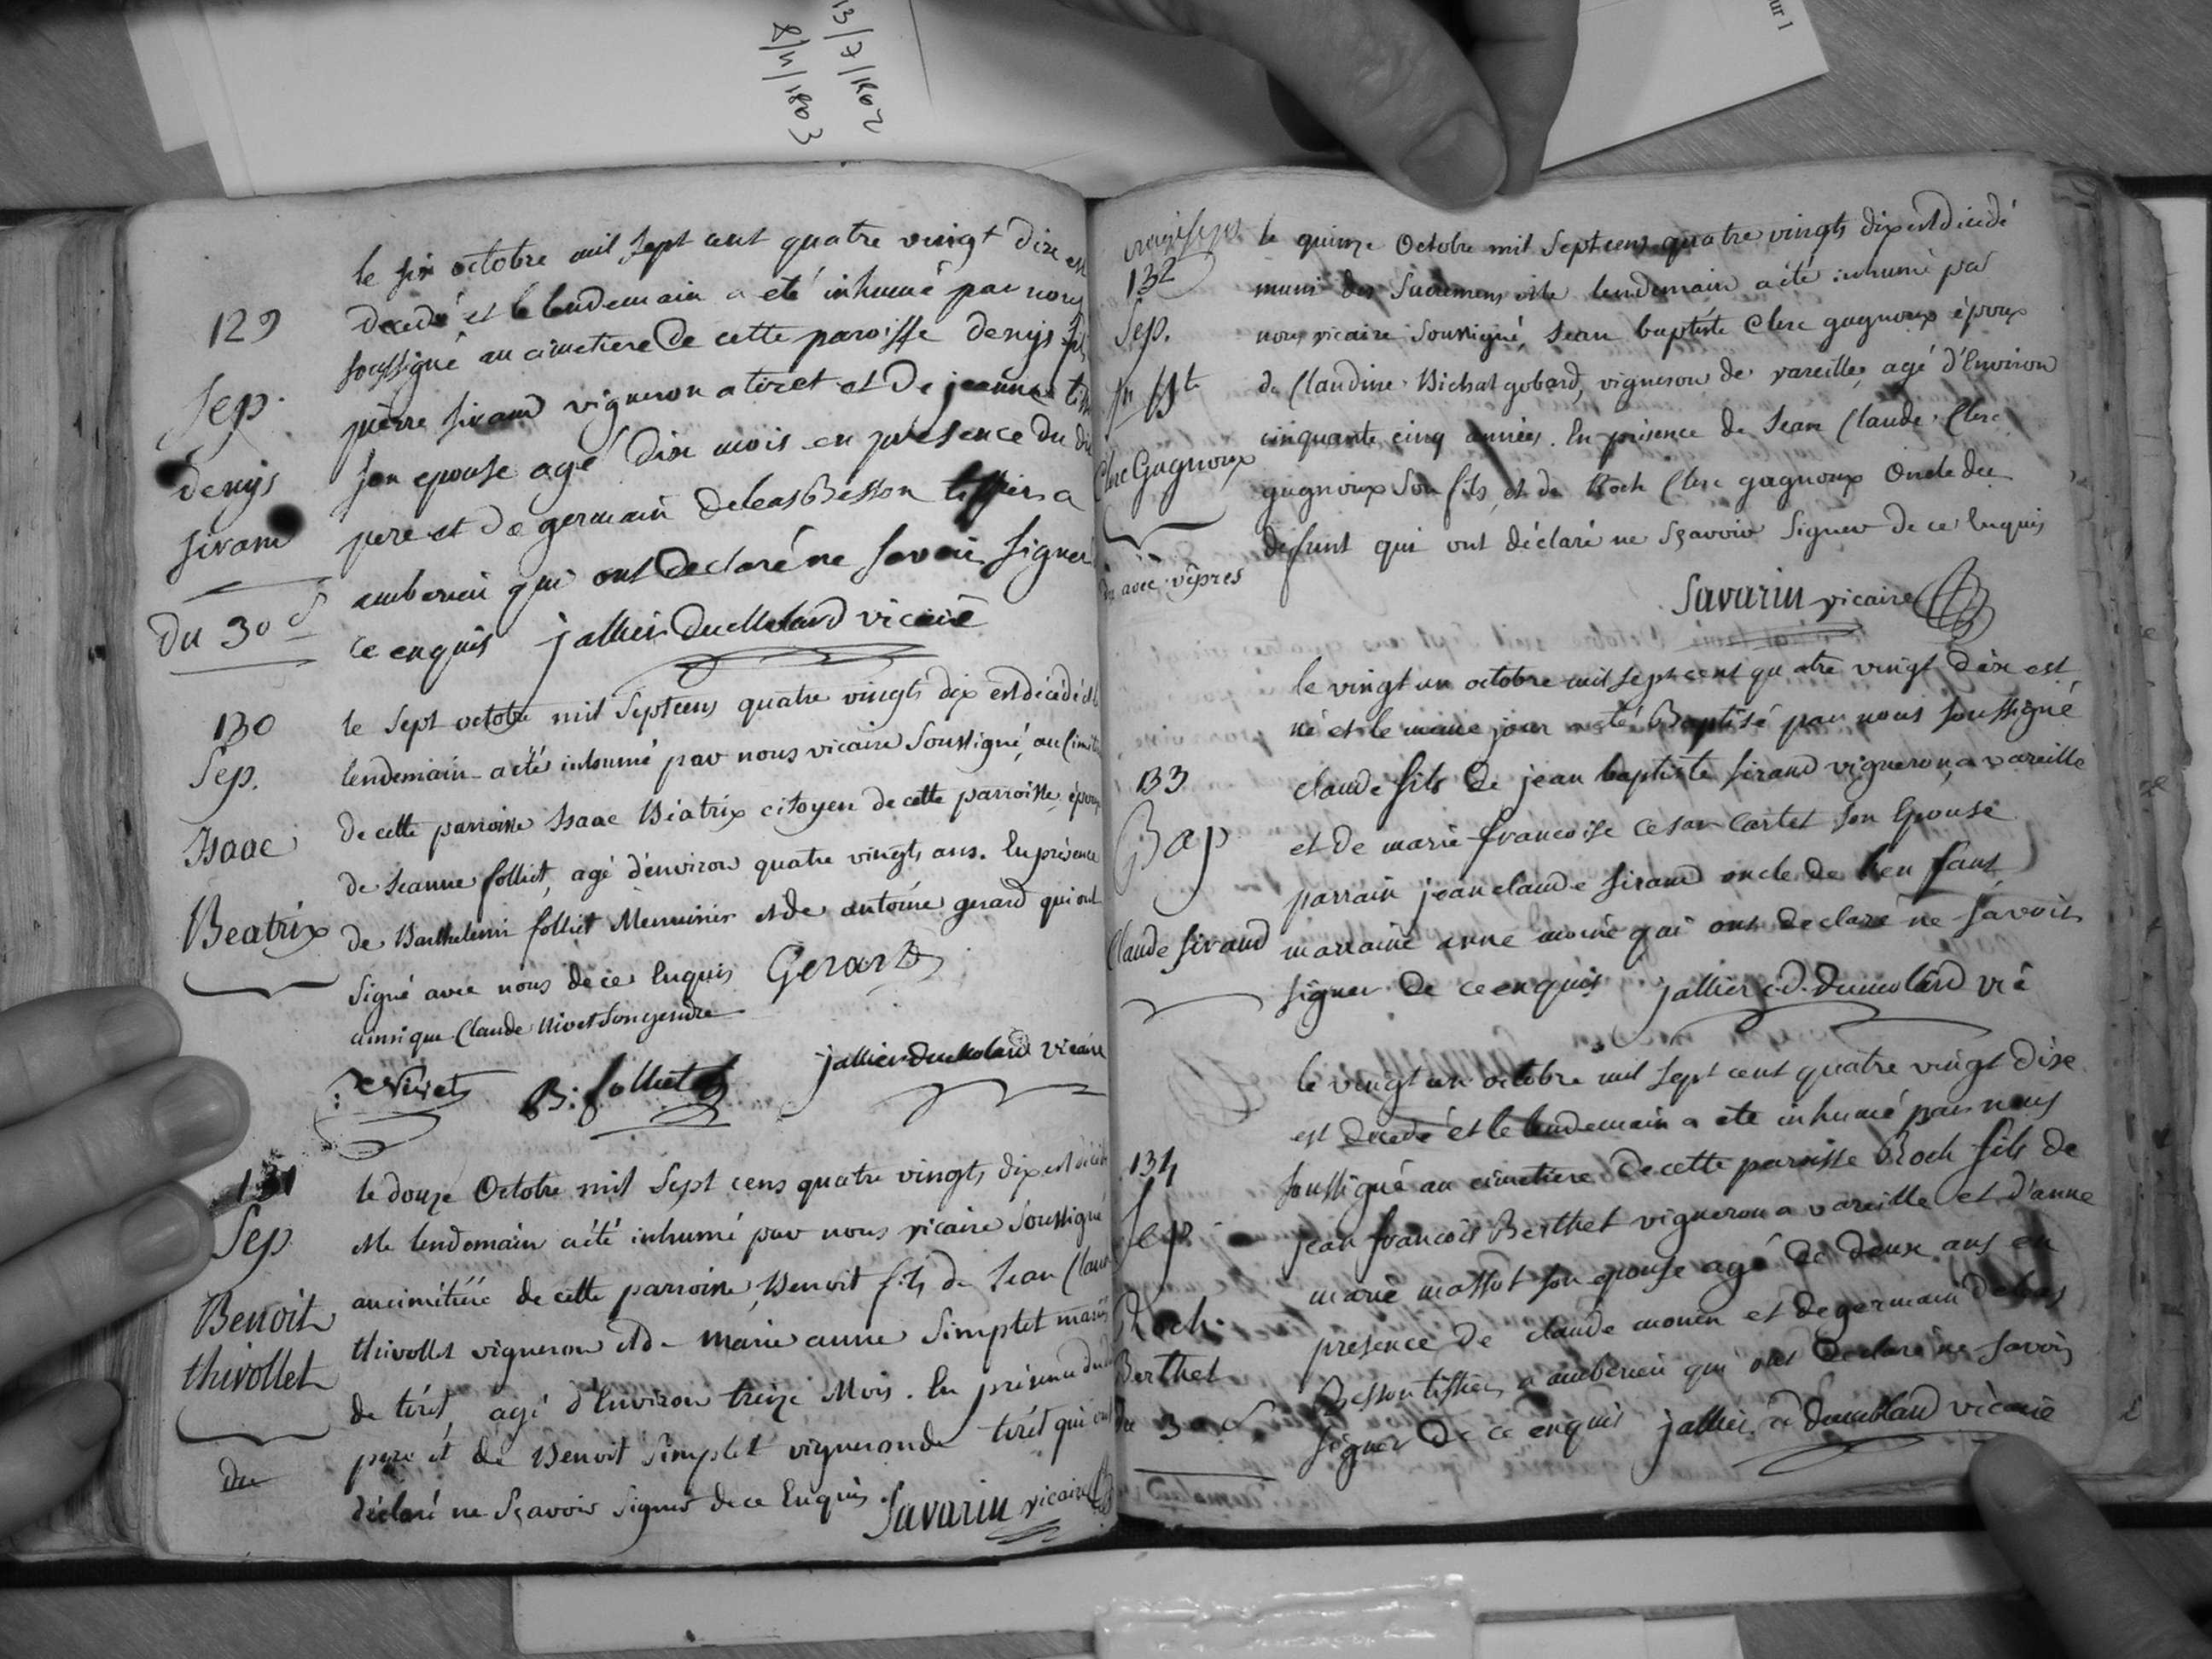 13/7/1802
8/4/1803
ur 1
129
Sep.
denys
sirand
du 30 s
le six octobre mil sept cent quatre vingt dix est
decedé et le lendemain a eté inhumé par nous
soussigné au cimetiere de cette paroisse denys fils
pierre sirand vigneron a tiret et de jeanne
son epouse agé dix mois en presence du dit
pere et de germain debeas Besson tissier a
amberieu qui ont declaré ne savoir signer
ce enquis jallier dumolard vicaire
130
Sep.
Isaac
Beatrix
le Sept octobre mil Septcens quatre vingts dix est décédé et le
lendemain a été inhumé par nous vicaire Soussigné, au
de cette parroisse Isaac Béatrix citoyen de cette parroisse époux
de Jeanne folliet, agé d'environ quatre vingts ans. En présence
de Barthelemi folliet Menuisier et de antoine gerard qui ont
Signé avec nous de ce Enquis Gerard
ainsi que Claude Nivet Son gendre
Nivet B: folliet jallier dumolard vicaire
131
Sep
Benoit
thivollet
du
le douze Octobre mil Sept cens quatre vingts dix est décédé
et le lendemain a été inhumé par nous vicaire Soussigné
au cimitiére de cette parroisse, Benoit fils de Jean Claude
thivollet vigneron et de marie anne Simplet mariés
de tirét, agé d'Environ treize Mois. En présence du dit
pere et de Benoit Simplet vigneron de tirét qui ont
déclaré ne Sçavoir Signer de ce Enquis Savarin vicaire
132
Sep.
Jn Bte
Clerc Gagnoux
avec vêpres
le quinze Octobre mil Septcens quatre vingts dix est décédé
muni des Sacremens et le lendemain a été inhumé par
nous vicaire Soussigné, Jean baptiste Clerc gagnoux époux
de Claudine Bichat gobard, vigneron de vareilles, agé d'Environ
cinquante cinq années. En présence de Jean Claude Clerc
gagnoux Son fils, et de Roch Clerc gagnoux Oncle du
défunt qui ont déclaré ne Sçavoir Signer de ce Enquis
Savarin vicaire
133
Bap
Claude sirand
le vingt un octobre mil sept cent quatre vingt dix est
né et le même jour a eté Baptisé par nous soussigné
claude fils de jean baptiste sirand vigneron a vareille
et de marie francoise cesar cartet son Epouse
parrain jean claude sirand oncle de l'enfant
marraine anne moine qui ont declaré ne savoir
signer de ce enquis jallier c.d. dumolard vic
134
Sep.
Roch
Berthet
du 30 s
le vingt un octobre mil sept cent quatre vingt dix
est decedé et le lendemain a eté inhumé par nous
soussigné au cimetiere de cette paroisse Roch fils de
jean francois Berthet vigneron a vareille et d'anne
marie massot son epouse agé de deux ans en
presence de claude monin et de germain debeas
Besson tissier a amberieu qui ont declaré ne savoir
signer de ce enquis jallier d dumolard vicaire